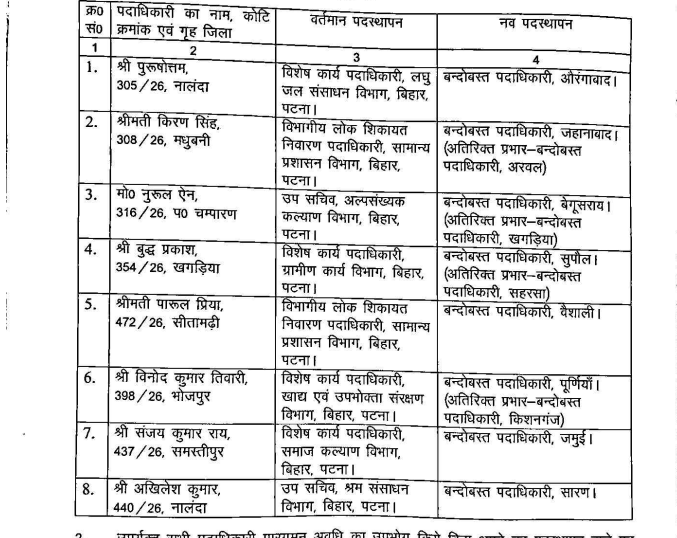 क्र0 पदाधिकारी का नाम, कोटि वर्तमान पदस्थापन नव पदस्थापन
सं0 क्रमांक एवं गृह जिला
1 2 3 4
1. श्री पुरूषोत्तम, विशेष कार्य पदाधिकारी, लघु बन्दोबस्त पदाधिकारी, औरंगाबाद।
305/26, नालंदा जल संसाधन विभाग, बिहार,
पटना।
2. श्रीमती किरण सिंह, विभागीय लोक शिकायत बन्दोबस्त पदाधिकारी, जहानाबाद।
308/26, मधुबनी निवारण पदाधिकारी, सामान्य (अतिरिक्त प्रभार–बन्दोबस्त
प्रशासन विभाग, बिहार, पदाधिकारी, अरवल)
पटना।
3. मो0 नुरूल ऐन, उप सचिव, अल्पसंख्यक बन्दोबस्त पदाधिकारी, बेगूसराय।
316/26, प0 चम्पारण कल्याण विभाग, बिहार, (अतिरिक्त प्रभार–बन्दोबस्त
पटना। पदाधिकारी, खगड़िया)
4. श्री बुद्ध प्रकाश, विशेष कार्य पदाधिकारी, बन्दोबस्त पदाधिकारी, सुपौल।
354/26, खगड़िया ग्रामीण कार्य विभाग, बिहार, (अतिरिक्त प्रभार–बन्दोबस्त
पटना। पदाधिकारी, सहरसा)
5. श्रीमती पारूल प्रिया, विभागीय लोक शिकायत बन्दोबस्त पदाधिकारी, वैशाली।
472/26, सीतामढ़ी निवारण पदाधिकारी, सामान्य
प्रशासन विभाग, बिहार,
पटना।
6. श्री विनोद कुमार तिवारी, विशेष कार्य पदाधिकारी, बन्दोबस्त पदाधिकारी, पूर्णियाँ।
398/26, भोजपुर खाद्य एवं उपभोक्ता संरक्षण (अतिरिक्त प्रभार–बन्दोबस्त
विभाग, बिहार, पटना। पदाधिकारी, किशनगंज)
7. श्री संजय कुमार राय, विशेष कार्य पदाधिकारी, बन्दोबस्त पदाधिकारी, जमुई।
437/26, समस्तीपुर समाज कल्याण विभाग,
बिहार, पटना।
8. श्री अखिलेश कुमार, उप सचिव, श्रम संसाधन बन्दोबस्त पदाधिकारी, सारण।
440/26, नालंदा विभाग, बिहार, पटना।